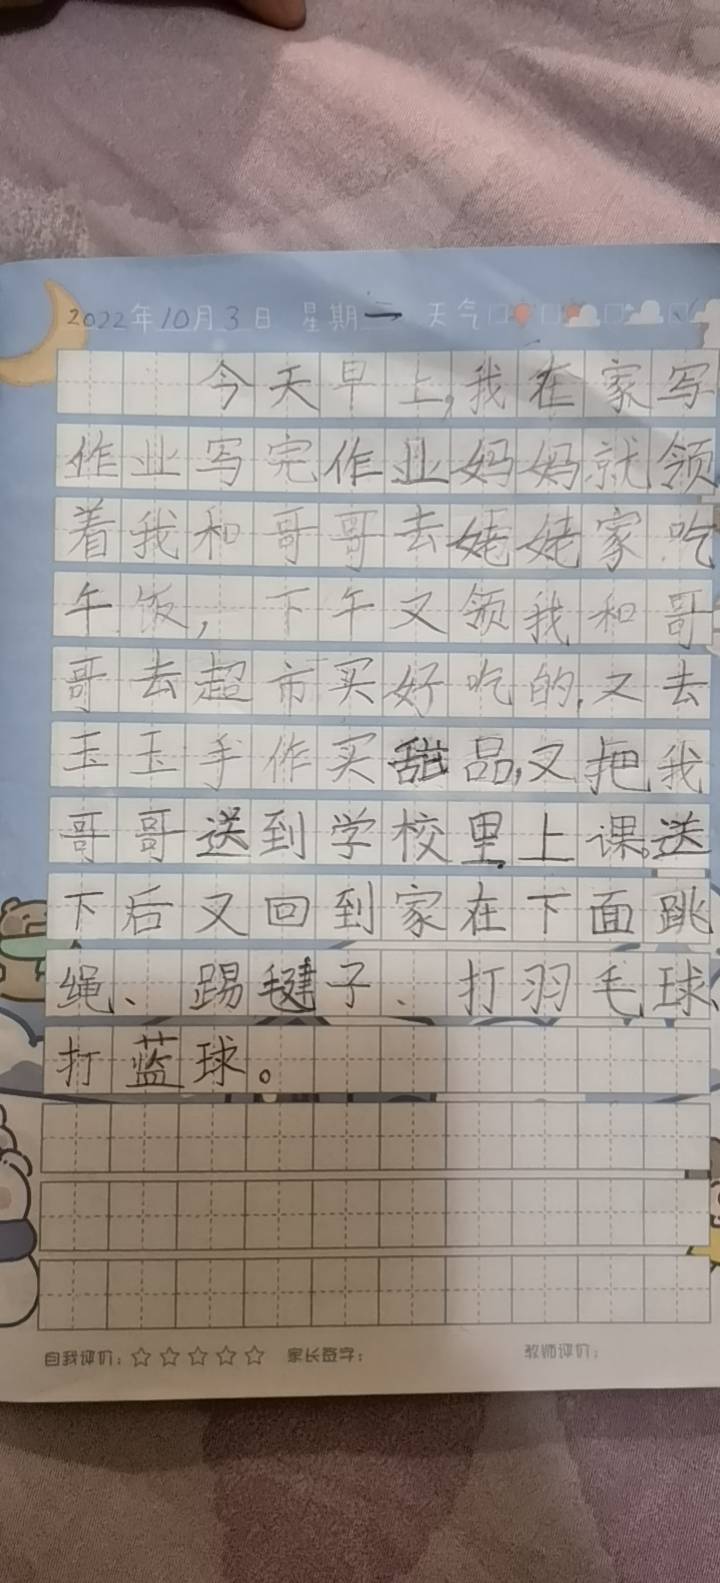 2022年10月3日 星期一 天气
今天早上,我在家写
作业写完作业妈妈就领
着我和哥哥去姥姥家吃
午饭,下午又领我和哥
哥去超市买好吃的,又去
玉玉手作买甜品,又把我
哥哥送到学校里上课。送
下后又回到家在下面跳
绳、踢毽子、打羽毛球、
打蓝球。
自我评价:☆☆☆☆☆ 家长签字: 教师评价: